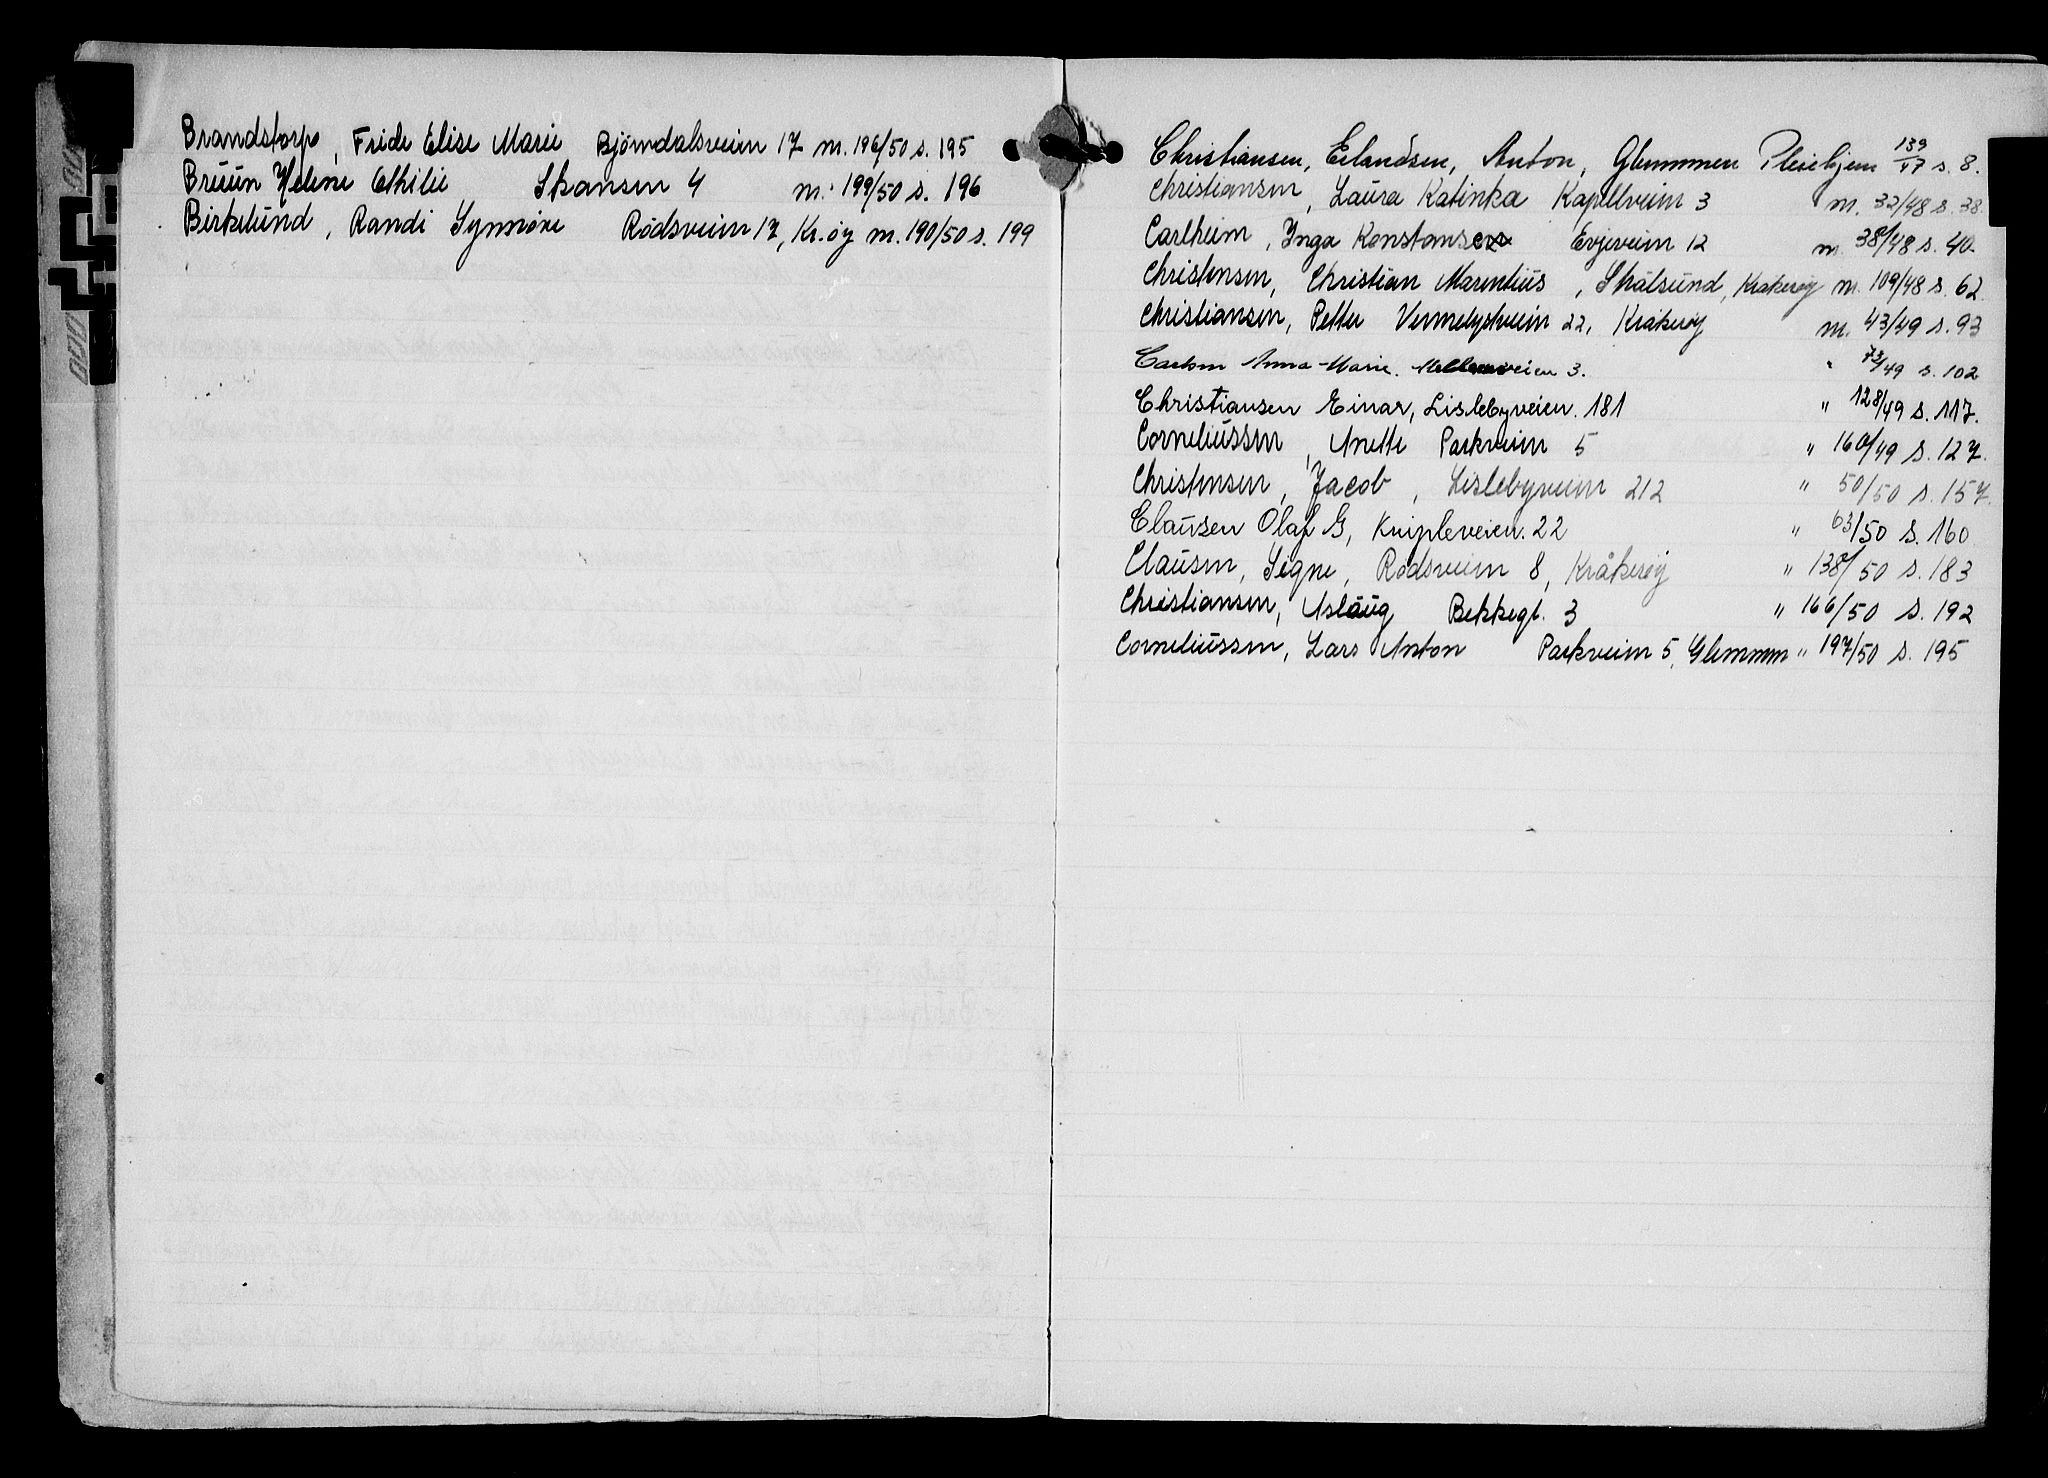 Brandstorp, Frida Elise Marie Bjørndalsveien 17 m. 196/50 s. 195
Bruun Helene Othilie Skansen 4 m. 199/50 s. 196
Birkelund, Randi Synnøve Rødsveien 17, Kr.øy m. 190/50 s. 199
Christiansen, Erlandsen, Anton, Glemmen Pleiehjem 139/47 s. 8.
Christiansen, Laura Katinka Kapellveien 3 m. 32/48 s. 38.
Carlheim, Inga Konstanse Evjeveien 12 m. 38/48 s. 40.
Christensen, Christian Marentius, Skålsund, Kråkerøy m. 109/48 s. 62
Christiansen, Petter Vennelystveien 22, Kråkerøy m. 43/49 s. 93
Carlsen Anna-Marie. 3. " 73/49 s. 102
Christiansen Einar, Lislebyveien. 181 " 128/49 s. 117.
Corneliussen, Anette Parkveien 5 " 160/49 s. 127.
Christensen, Jacob, Lislebyveien 212 " 50/50 s. 157.
Clausen Olaf G, Knipleveien. 22 " 63/50 s. 160
Clausen, Signe, Rødsveien 8, Kråkerøy " 138/50 s. 183
Christiansen, Aslaug Bekkegt. 3 " 166/50 s. 192
Corneliussen, Lars Anton Parkveien 5, Glemmen " 197/50 s. 195